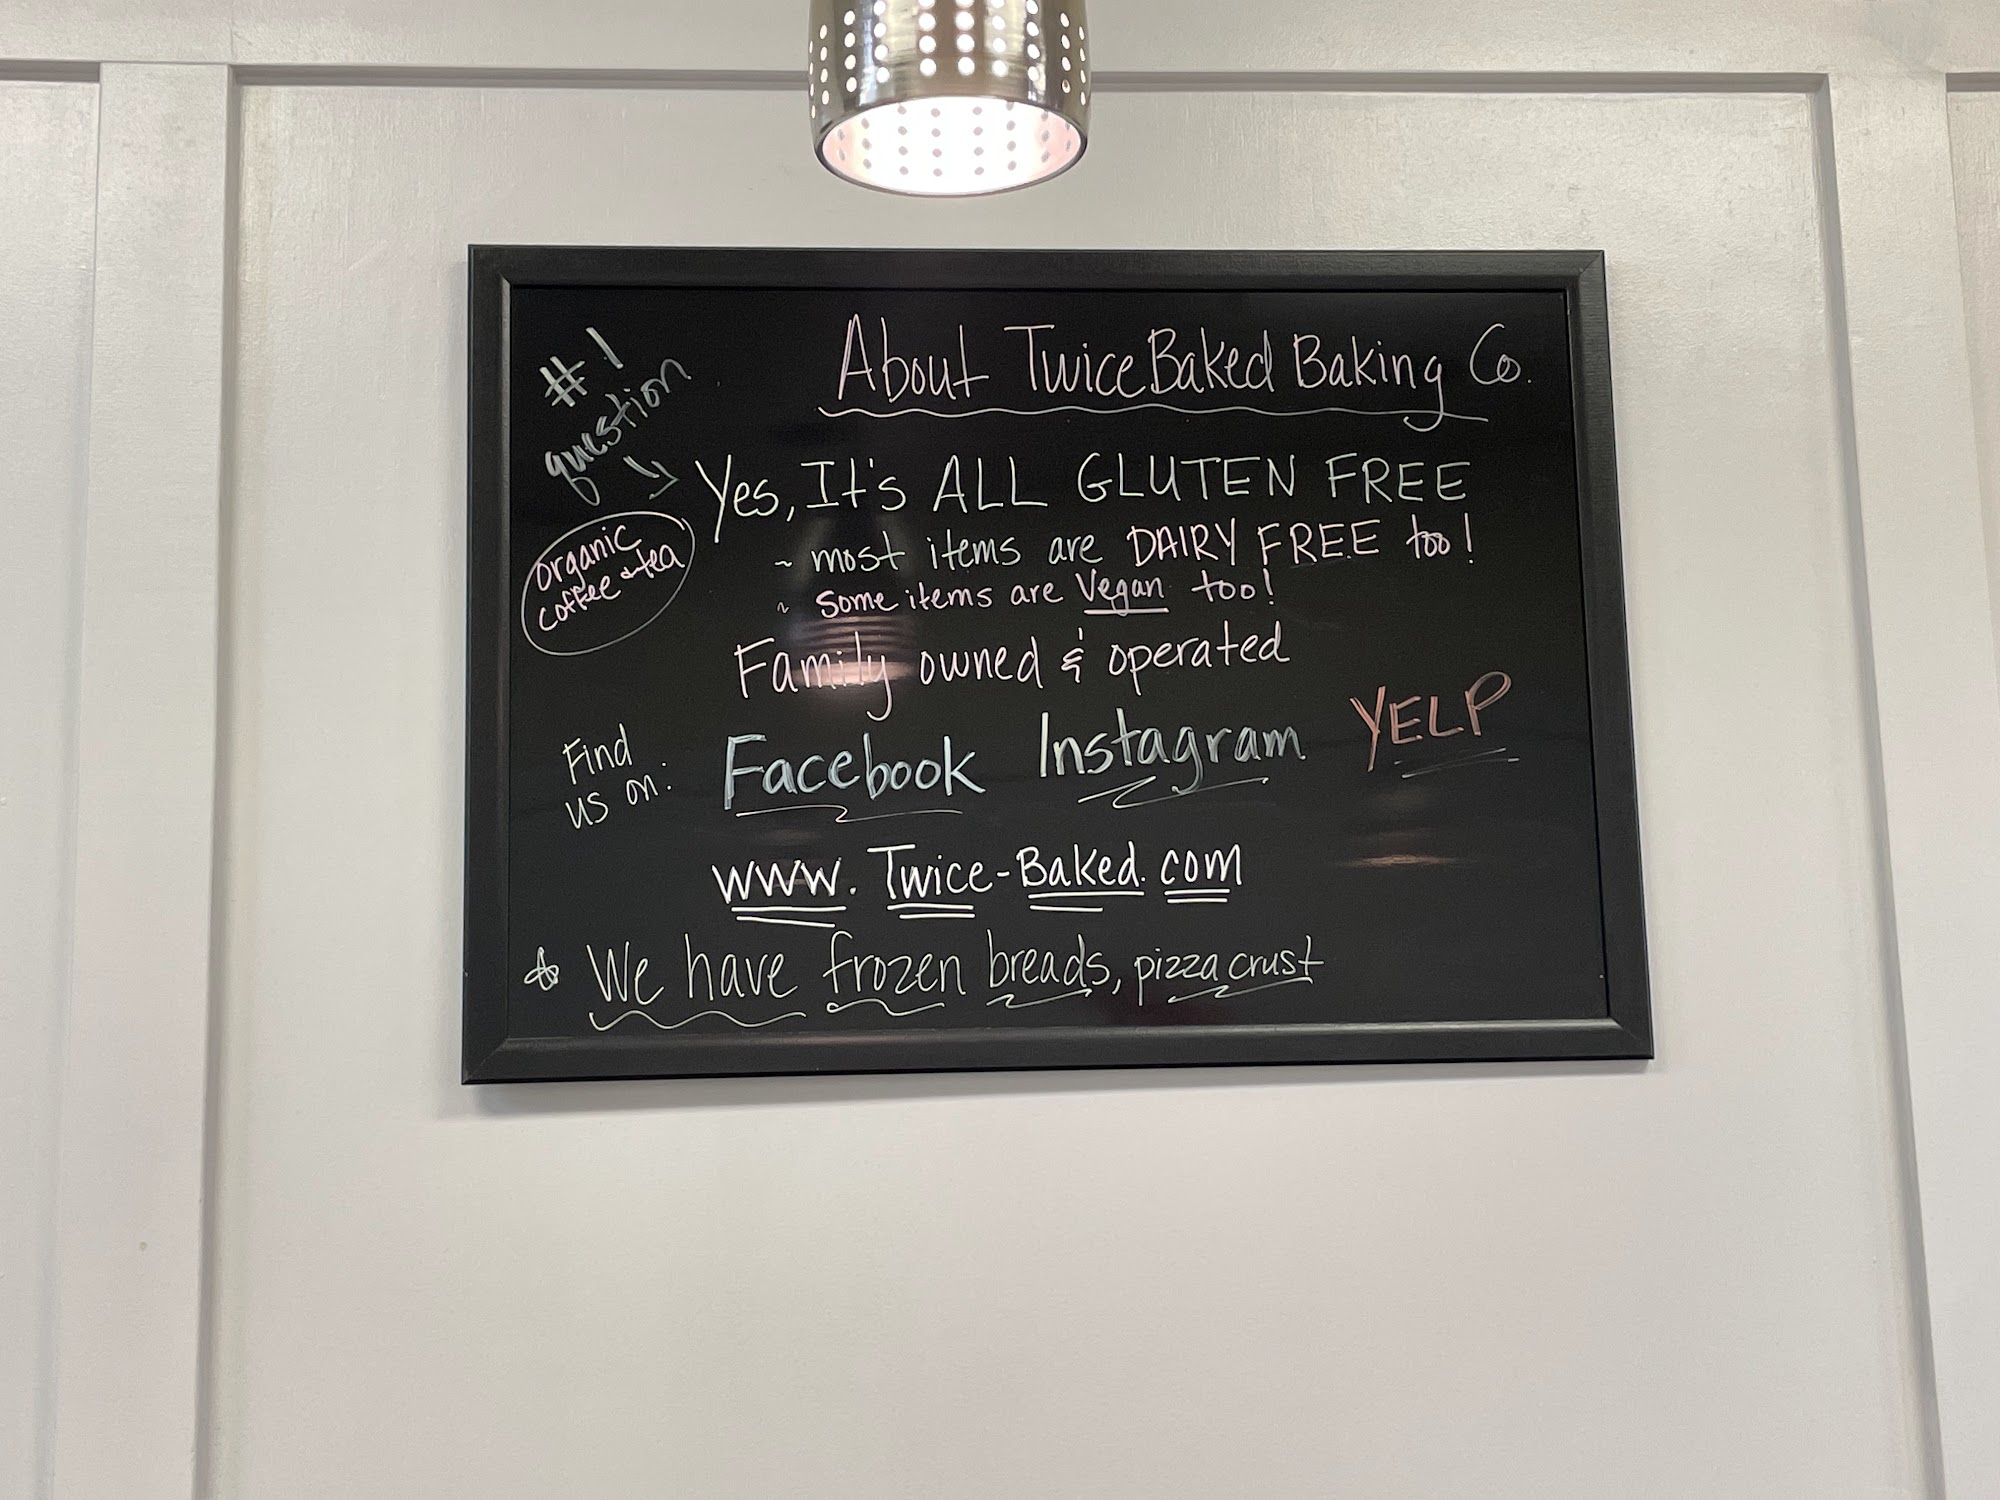 About Twice Baked Baking Co.
#1
question
Yes, It's ALL GLUTEN FREE
organic
coffee & tea
~ most items are DAIRY FREE too!
~ some items are Vegan too!
Family owned & operated
Find
us on:
Facebook Instagram YELP
www.Twice-Baked.com
☆ We have frozen breads, pizza crust